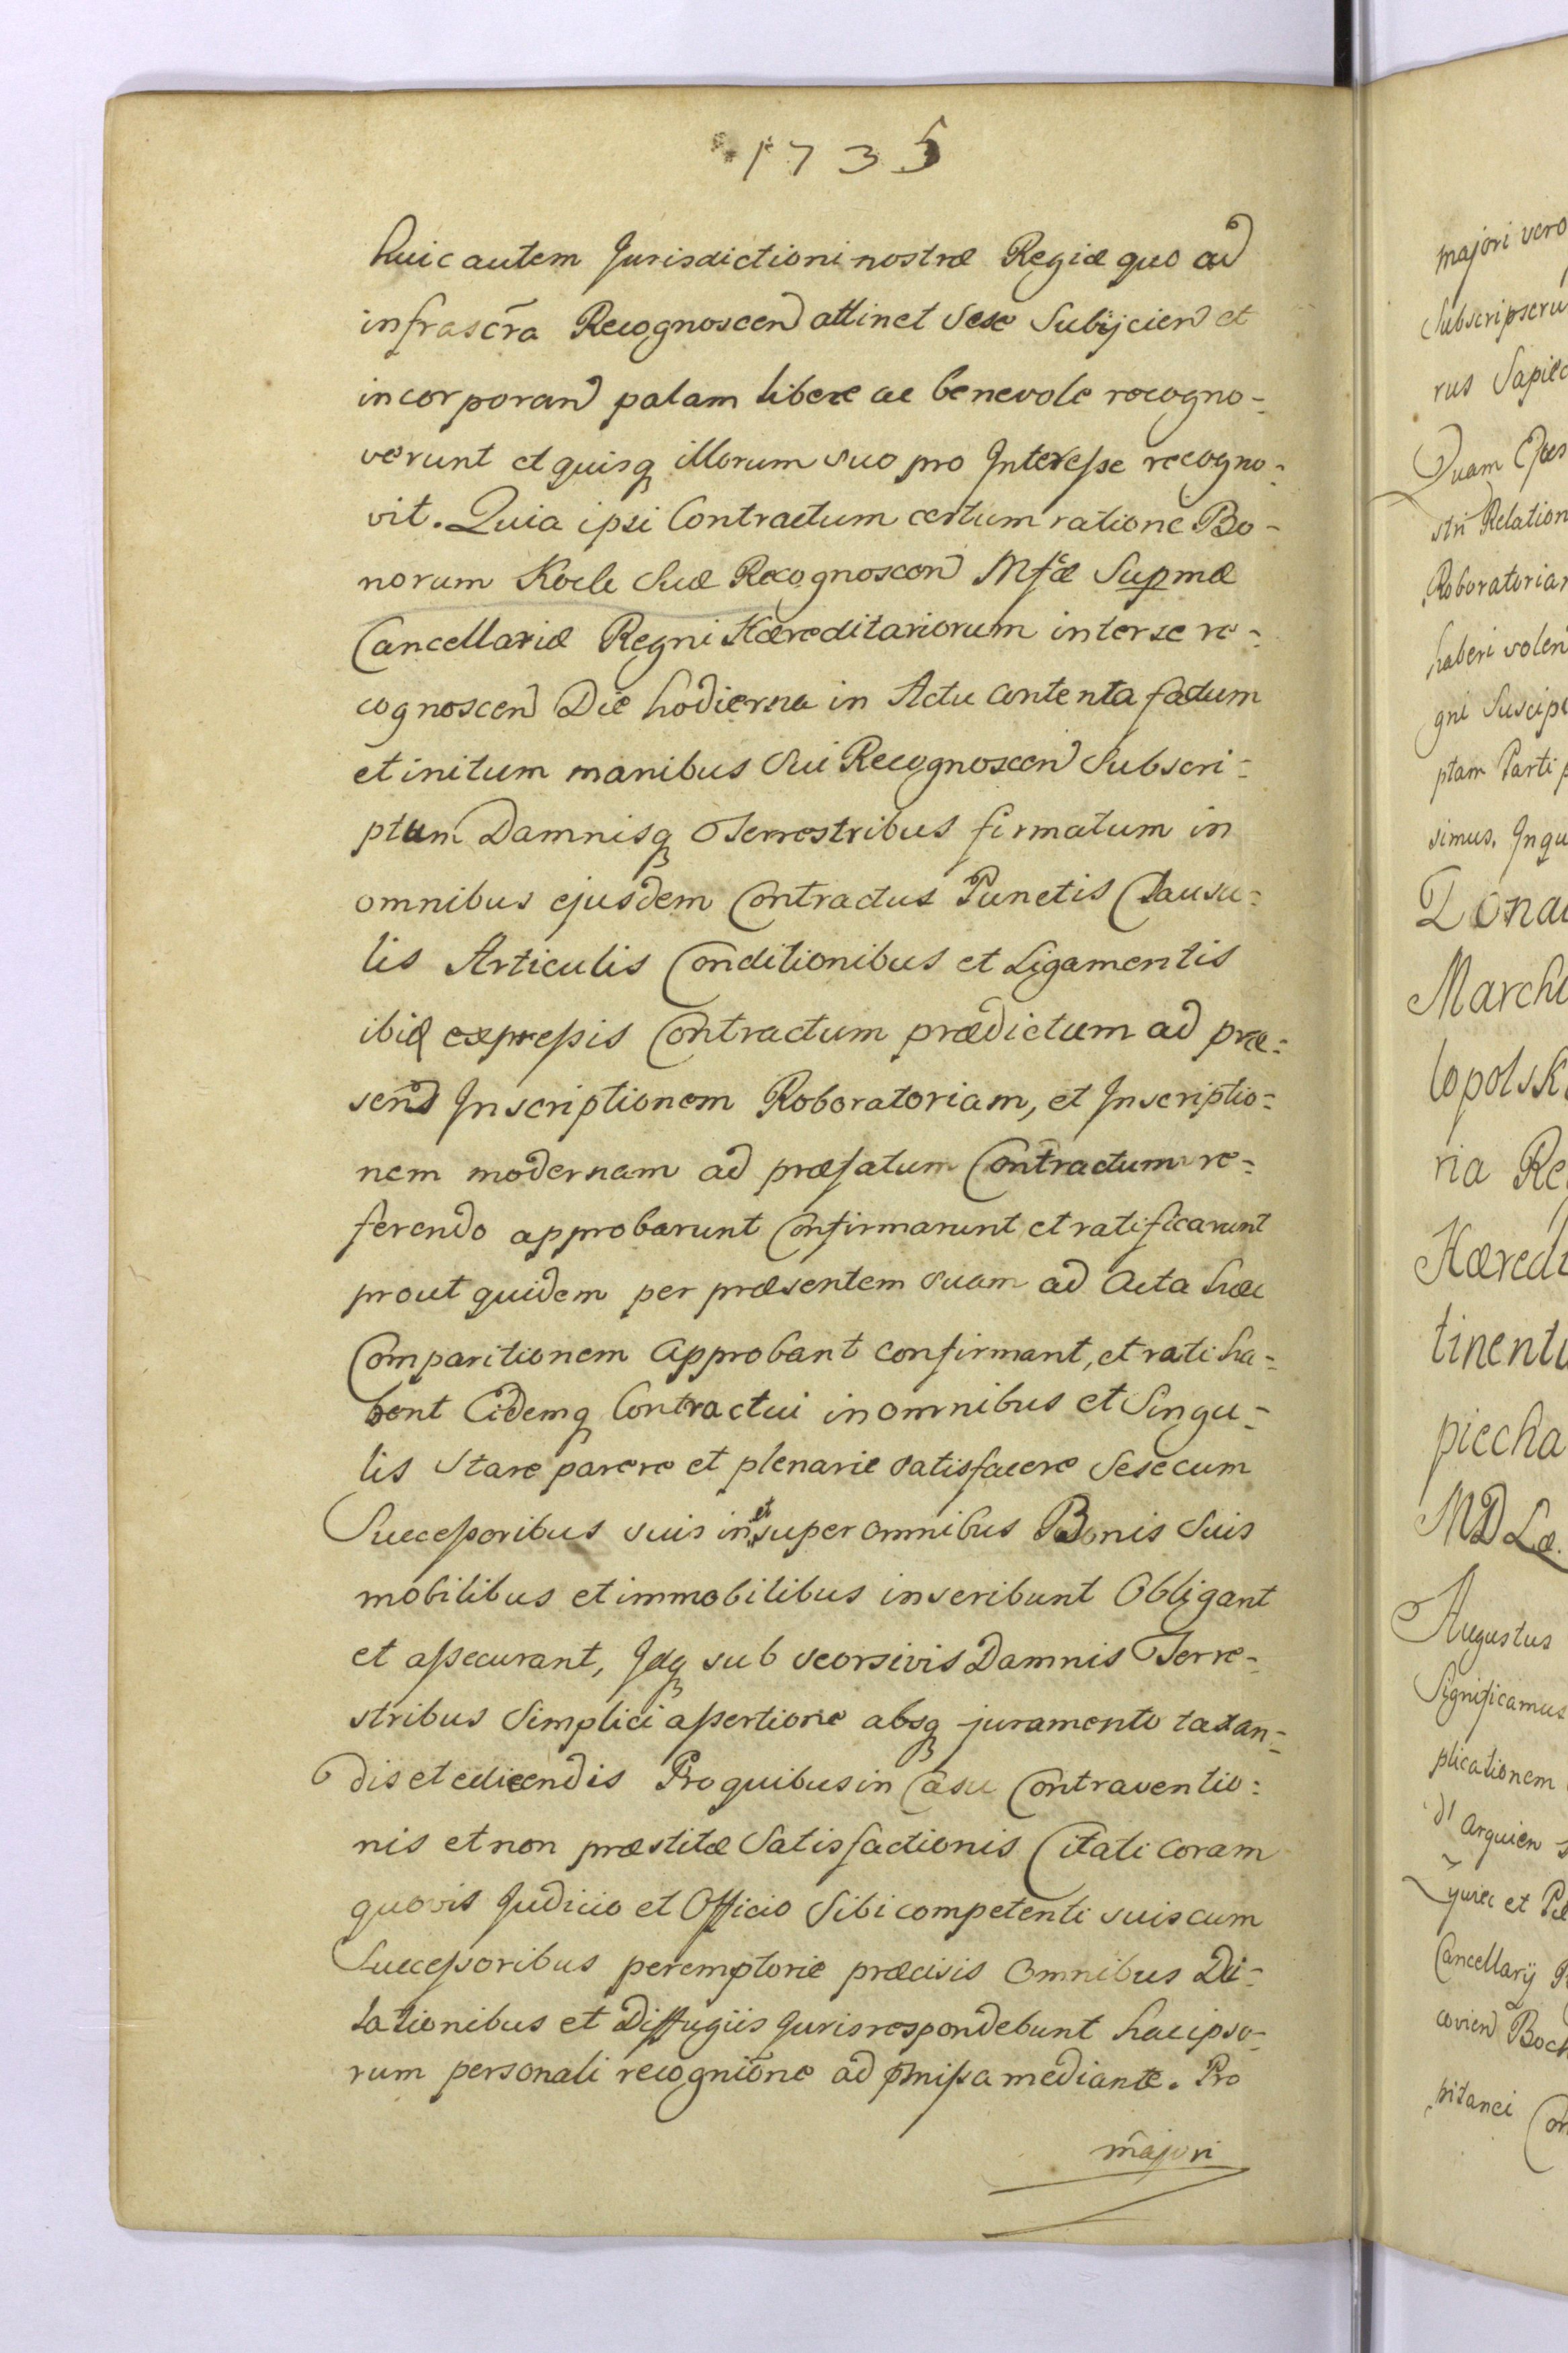 1735
huic autem Jurisdictioni nostræ Regiæ quo ad
infrascr̃a Recognoscen attinet sese Subijcien et
incorporan palam libere ac benevole recogno-
verunt et quisq illorum suo pro Interesse recogno-
vit. Quia ipsi Contractum certum ratione Bo-
norum Kock Suæ Recognoscen Mfcæ Supmæ
Cancellariæ Regni Hæreditariorum inter se re-
cognoscen Die hodierna in Actu contenta factum
et initum manibus Sui Recognoscen Subscri-
ptum Damnisq Terrestribus firmatum in
omnibus ejusdem Contractus Punctis Clausu-
lis Articulis Conditionibus et Ligamentis
ibid expressis Contractum prædictum ad præ-
sens Inscriptionem Roboratoriam, et Inscriptio-
nem modernam ad præfatum Contractum re-
ferendo approbarunt Confirmarunt et ratificarunt
prout quidem per præsentem suam ad Acta hæc
Comparitionem approbant confirmant, et ratiha-
bent Eidemq Contractui in omnibus et Singu-
lis stare parere et plenarie satisfacere Sese cum
Successoribus suis in et super omnibus Bonis Suis
mobilibus et immobilibus inscribunt Obligant
et assecurant, Idq sub seorsivis Damnis Terre-
stribus Simplici assertione absq juramento taxan-
dis et edicendis Pro quibus in Casu Contraventio-
nis et non præstitæ Satisfactionis Citati coram
quovis Judicio et Officio Sibi competenti suis cum
Successoribus peremptorie præcisis Omnibus Di-
lationibus et Diffugiis Juris respondebunt hac ipso-
rum personali recogniõne ad pmissa mediante. Pro
majori
majori vero
Subscripseru
rus Sapiec
Quam
stri Relation
Roboratoriam
haberi volen
gni Suscipe
ptam Parti p
simus. Inqu
Dona
March
lopolsk
ria Re
Hæredi
tinenti
piecha
MDLæ.
Augustus
Significamus
plicationem
d'Arquien
et
Cancellarij
covien Boch
pitanei Con